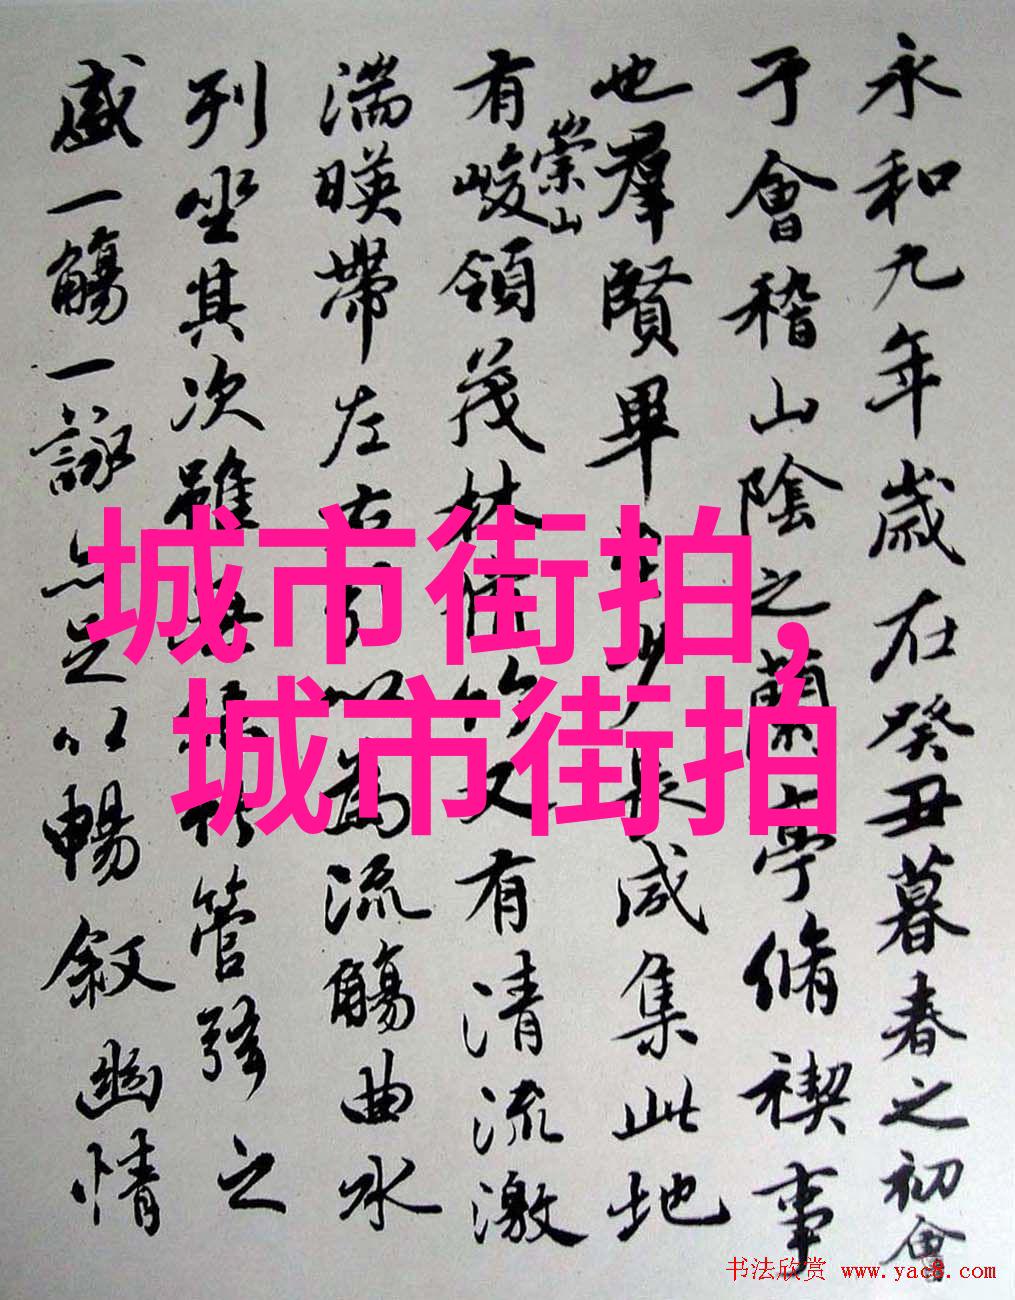 永和九年歲在癸丑暮春之初會
于會稽山陰之蘭亭脩禊事
也羣賢畢至少長咸集此地
有崇山峻領茂林脩竹又有清流激
湍暎帶左右引以為流觴曲水
列坐其次雖無絲竹管弦之
盛一觴一詠亦足以暢敘幽情
城市街拍,
城市街拍
书法欣赏 www.yac8.com